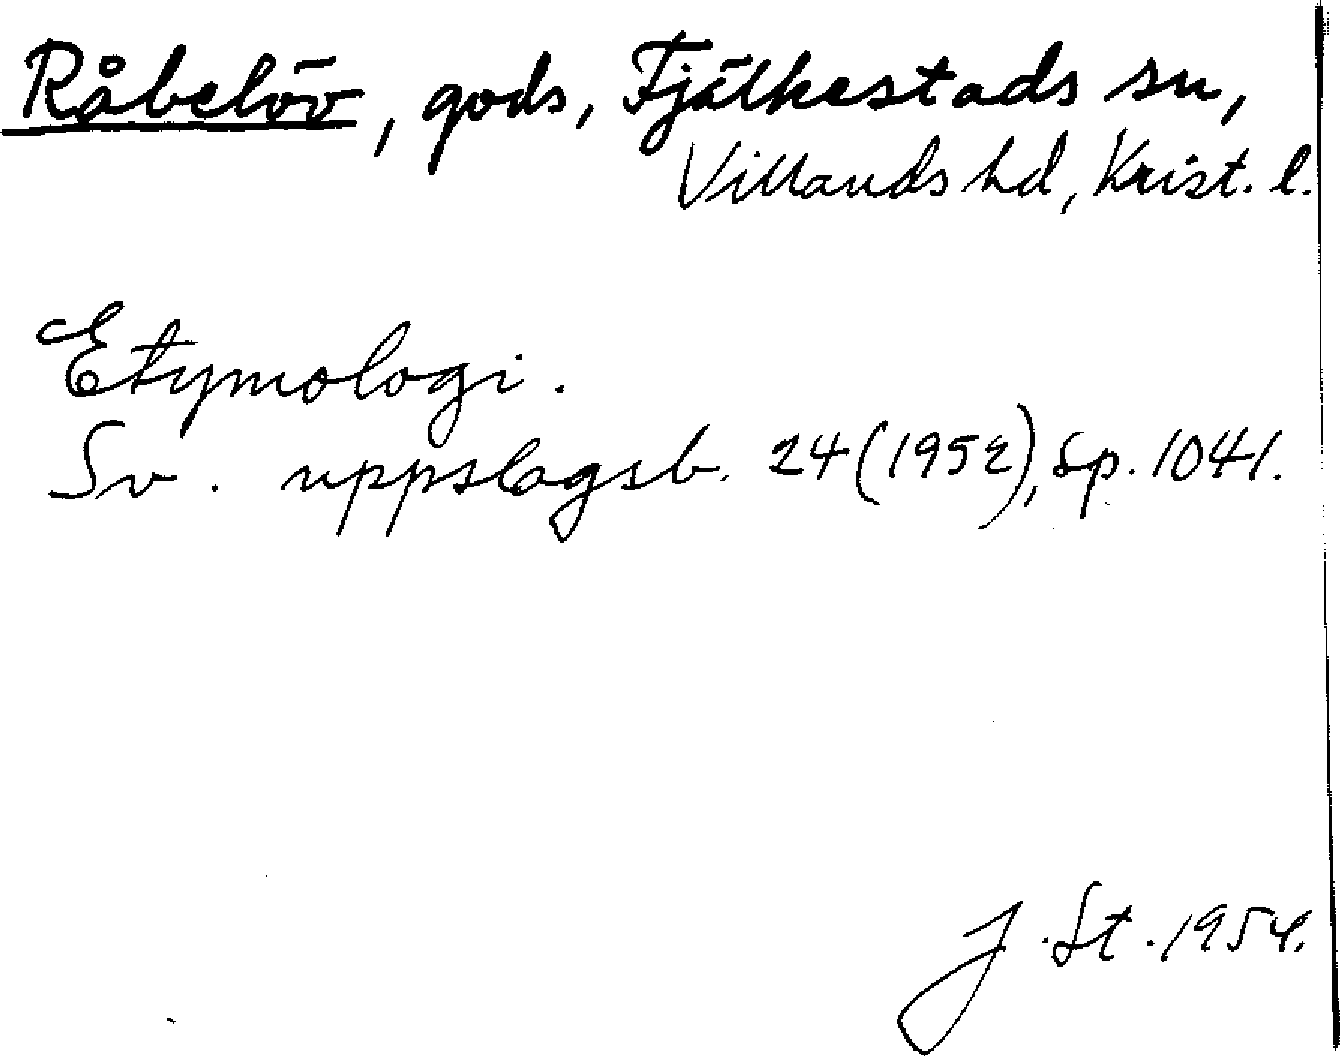 Råbelöv, gods, Fjälkestads sn,
Villands hd, Krist. l.
Etymologi.
Sv. uppslagsb. 24 (1952), Sp. 1041.
J. St. 1954.